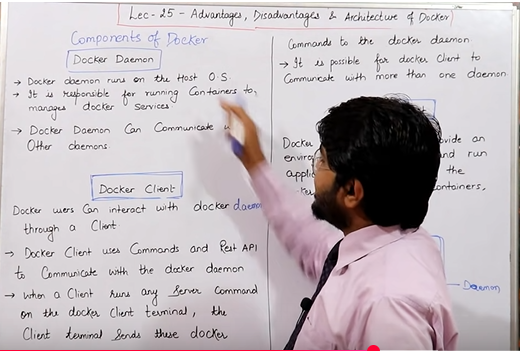 Lec-25 - Advantages, Disadvantages & Architecture of Docker
Components of Docker
Docker Daemon
→ Docker daemon runs on the Host O.S.
→ It is responsible for running Containers to,
manages docker Services.
→ Docker Daemon Can Communicate
Other daemons.
Docker Client
Docker users Can interact with docker daemon
through a Client
→ Docker Client uses Commands and Rest API
to Communicate with the docker daemon
→ When a Client runs any Server Command
on the docker Client terminal, the
Client terminal Sends these docker
Commands to the docker daemon
→ It is possible for docker Client to
Communicate with more than one daemon.
Docker
an
and run
the
Containers,
Daemon